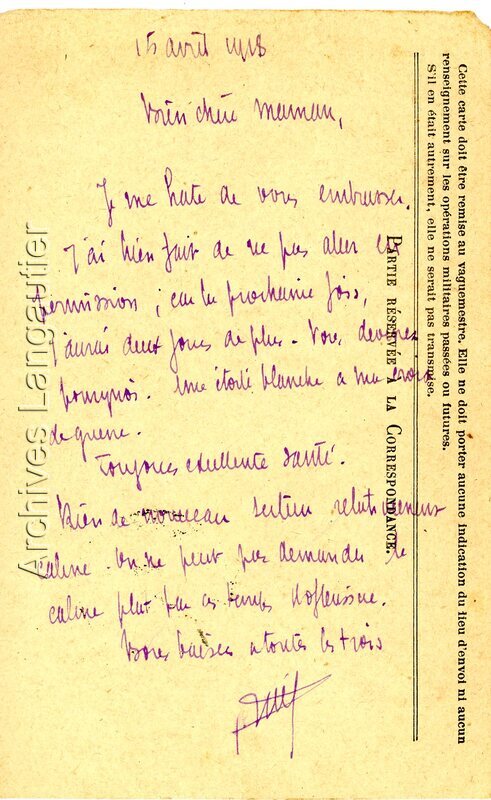 15 avril 1918
Bien chère maman,
Je me hate de vous embrasser.
J'ai bien fait de ne pas aller en
permission ; car la prochaine fois,
j'aurai deux jours de plus. Vous devinez
pourquoi. Une étoile blanche à ma croix
de guerre.
Toujours excellente santé.
Rien de nouveau secteur relativement
calme. On ne peut pas demander le
calme plat par ces temps d'offensive.
Bons baisers a toutes les trois
PARTIE RÉSERVÉE A LA CORRESPONDANCE.
Cette carte doit être remise au vaguemestre. Elle ne doit porter aucune indication du lieu d'envoi ni aucun
renseignement sur les opérations militaires passées ou futures.
S'il en était autrement, elle ne serait pas transmise.
Archives Langautier